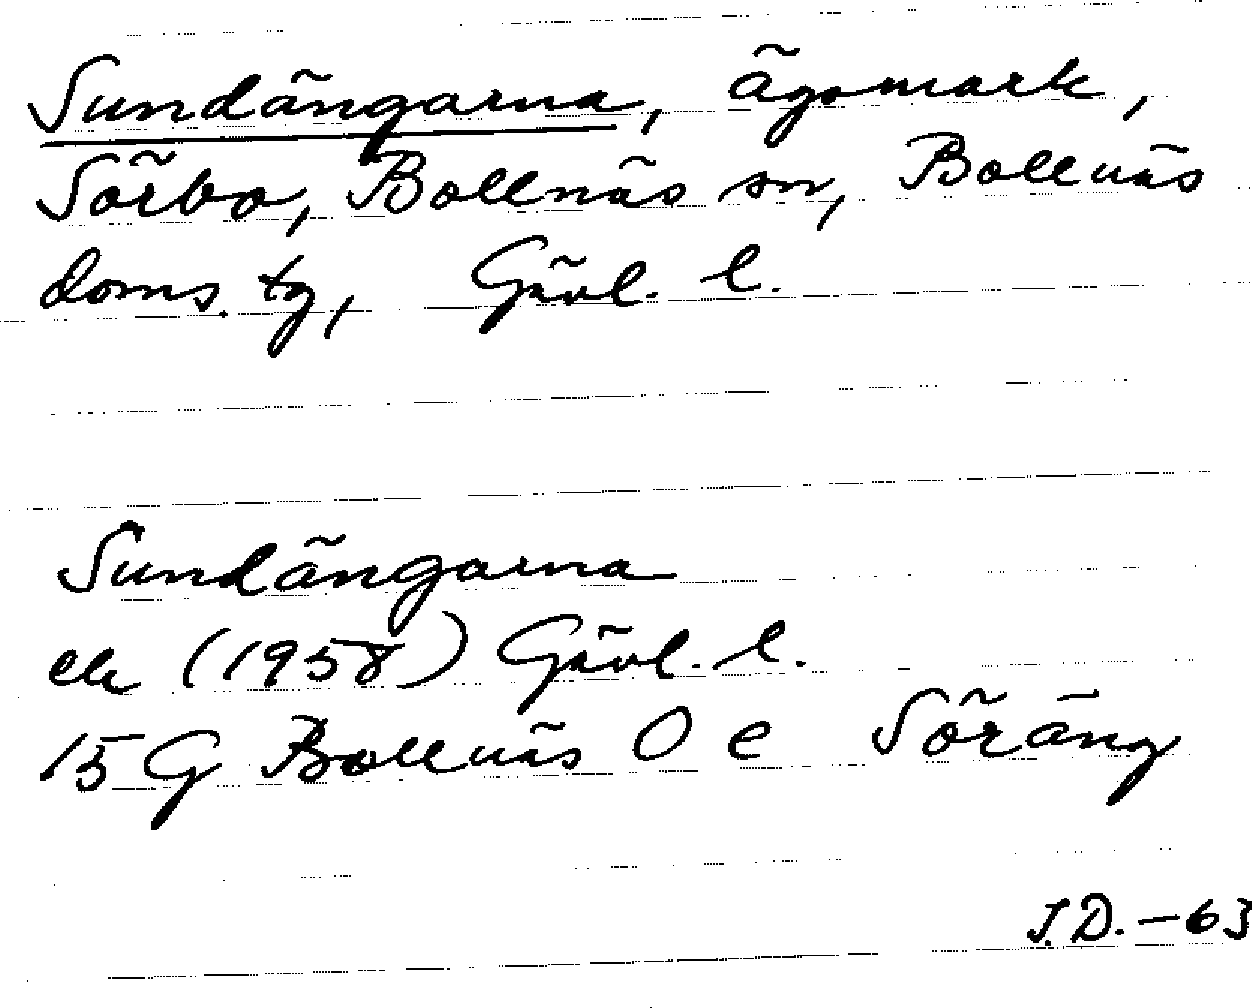 Sundängarna, ägomark,
Sörbo, Bollnäs sn, Bollnäs
doms. tg, Gävl. l.
Sundängarna
ek (1958) Gävl. l.
15 G Bollnäs O e Söräng
J.D. -63